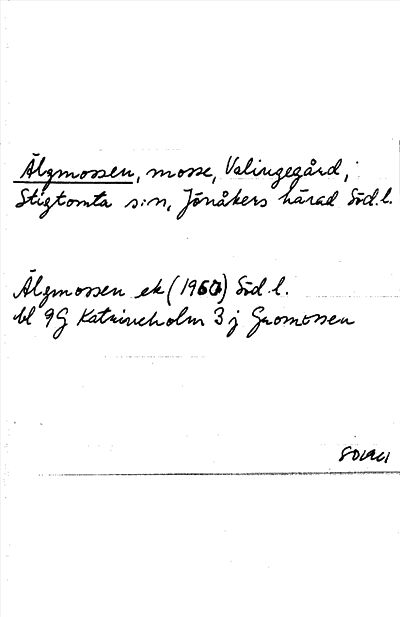 Älgmossen, mosse, Valingegård,
Stigtomta s:n, Jönåkers härad Södl.
Älgmossen ek (1960) Södl.
bl 9G Katrineholm 3 j Gromossen